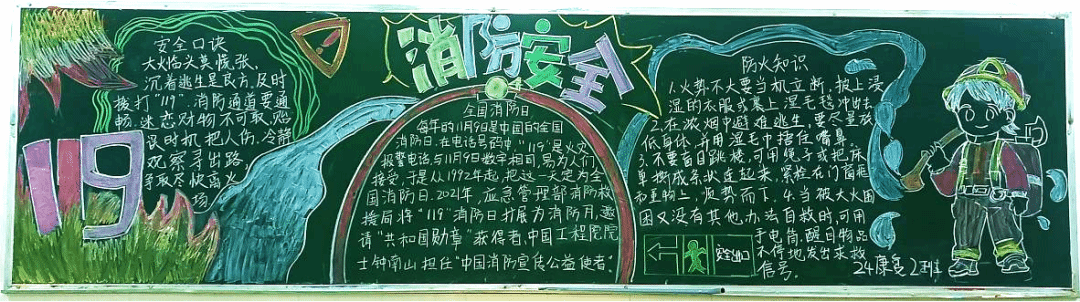 安全口诀
大火临头莫慌张、
沉着逃生是良方,及时
拨打"119".消防通道要通
畅.迷恋财物不可取.贻
误时机把人伤.冷静
观察寻出路,
争取尽快离火
场.
119
消防安全
全国消防日
每年的11月9日是中国的全国
消防日.在电话号码中,"119"是火灾
报警电话,与11月9日数字相同,易为人们
接受,于是从1992年起,把这一天定为全
国消防日.2021年,应急管理部消防救
援局将"119"消防日扩展为消防月,邀
请"共和国勋章"获得者,中国工程院院
士钟南山担任"中国消防宣传公益使者".
防火知识
1.火势不大要当机立断,披上浸
湿的衣服或裹上湿毛毯冲出去
2.在浓烟中避难逃生,要尽量放
低身体,并用湿毛巾捂住嘴鼻.
3.不要盲目跳楼,可用绳子或把床
单撕成条状连起来,紧拴在门窗框
和重物上,顺势而下.4.当被大火围
困又没有其他办法自救时,可用
手电筒,醒目物品
不停地发出求救
信号.
安全出口
24康复2班